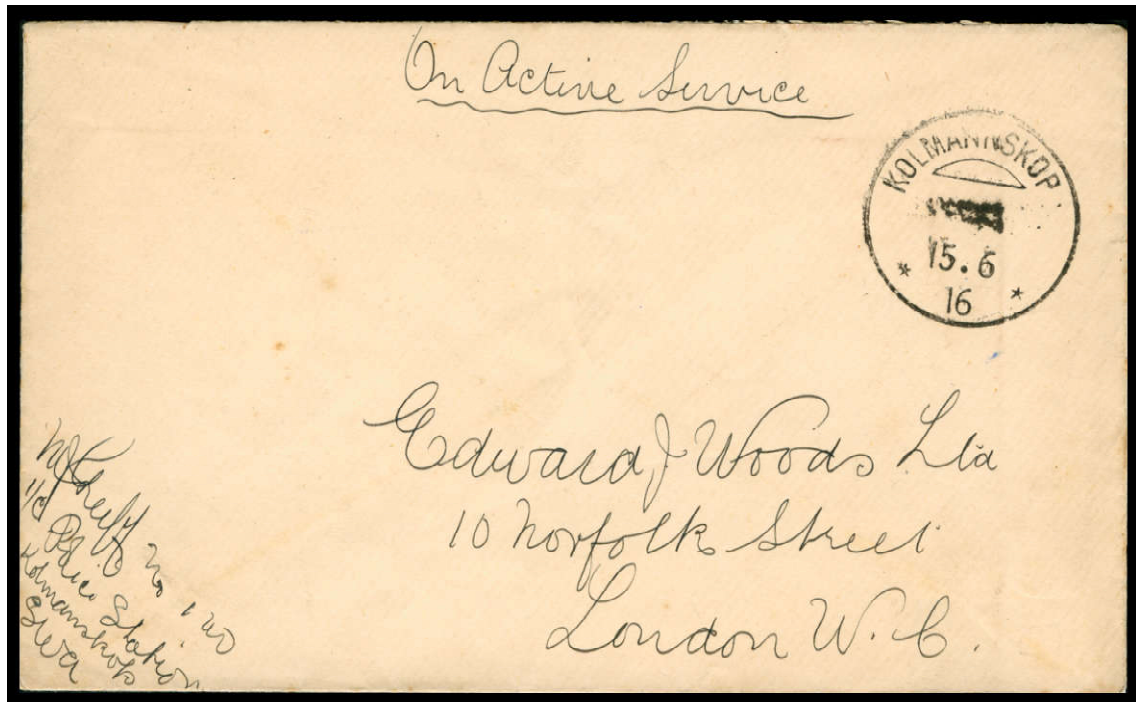 On Active Service
KOLMANNSKOP
15.6
16
Edward J Woods Ltd
10 Norfolk Street
London W.C.
No 1200
i/c Police Station
Kolmanskop
SWA